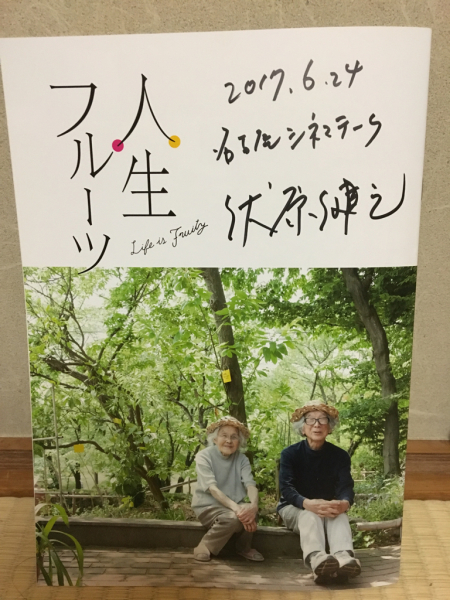 人生
フルーツ
Life is Fruity
2017.6.24
名古屋シネマテーク
伏原健之